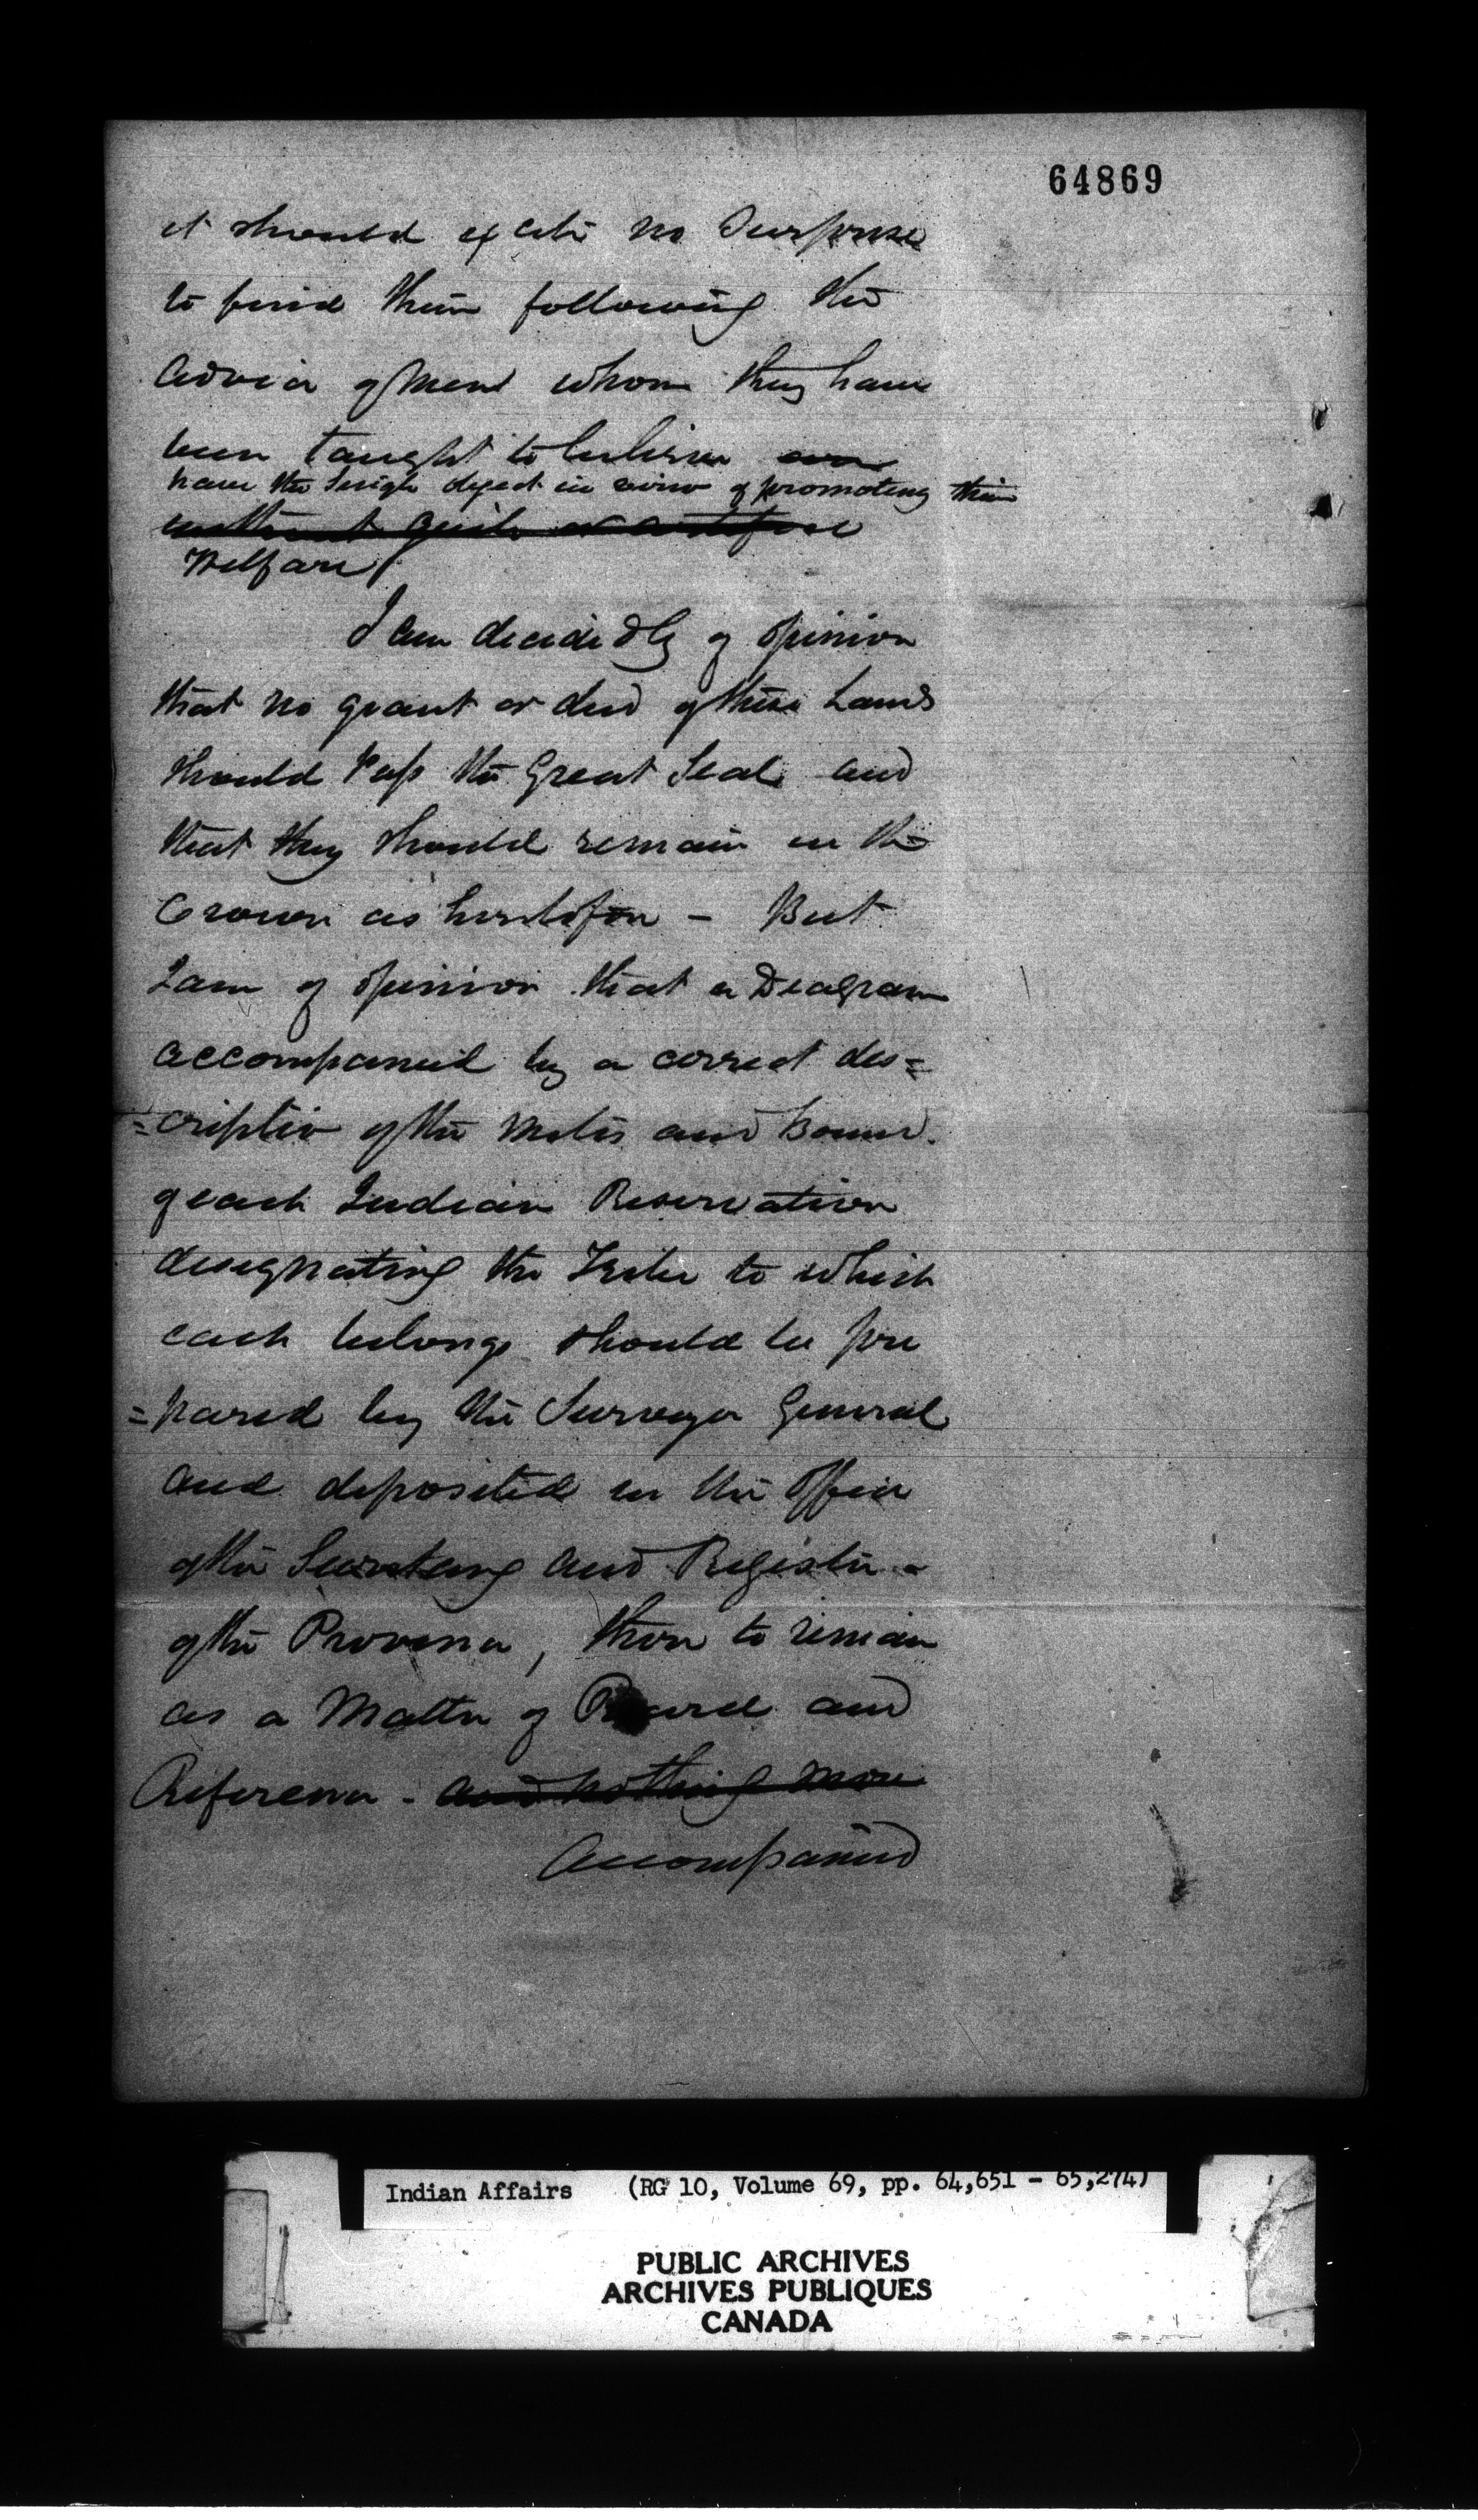 64869
it should excite no Surprise
to find them following the
advice of Men whom they have
been taught to believe are
have the Single object in view of promoting their
without guile or artifice
Welfare
I am decidedly of opinion
that no grant or deed of these Lands
should Pass the Great Seal and
that they should remain in the
Crown as heretofore - But
I am of opinion that a Diagram
accompanied by a correct des=
=cription of the Metes and Bounds
of each Indian Reservation
designating the Tribe to which
each belongs should be pre
=pared by the Surveyor General
and deposited in the Office
of the Secretary and Register
of the Province, there to remain
as a Matter of Record and
Reference - and nothing more
Accompanied
Indian Affairs (RG 10, Volume 69, pp. 64,651 - 65,274)
PUBLIC ARCHIVES
ARCHIVES PUBLIQUES
CANADA